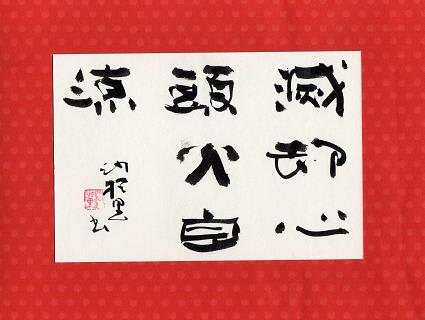 滅却心
頭火自
涼